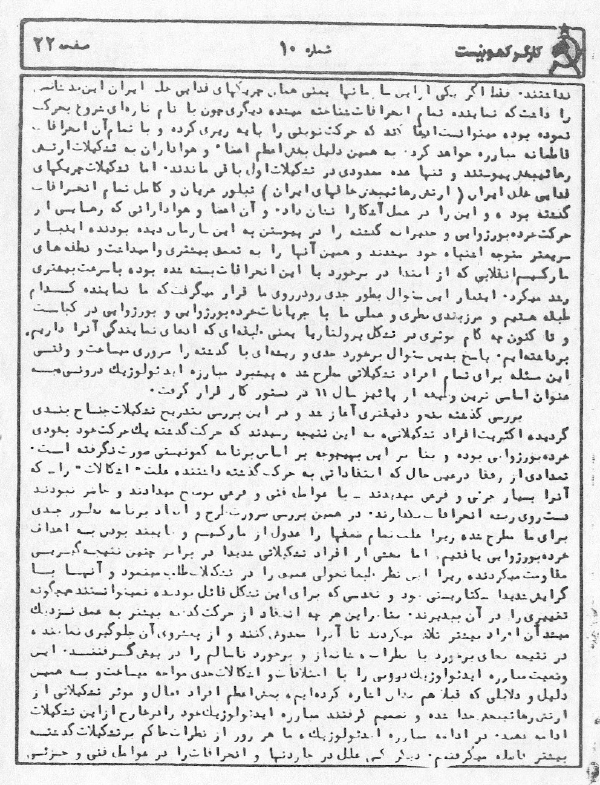 کارگر کمونیست
شماره ۱۰
صفحه ۲۲
نداشتند. فقط اگر یکی از این سازمانها یعنی همان چریکهای فدایی خلق ایران این
را داشت که نماینده تمام انحرافات شناخته میشده دیگری چون با نام تازه‌ای شروع بحرکت
نموده بوده میتوانست ادعا کند که حرکت نوینی را پایه ریزی کرده و با تمام آن انحرافات
قاطعانه مبارزه خواهد کرد. به همین دلیل بخش اعظم اعضاء و هواداران به تشکیلات ارتش
رهائیبخش پیوستند و تنها عده معدودی در تشکیلات اول باقی ماندند. اما تشکیلات چریکهای
فدایی خلق ایران ( ارتش رهائیبخش خلقهای ایران ) تبلور عریان و کامل تمام انحرافات
گذشته بوده و این را در عمل آشکارا نشان داد. و آن اعضا و هوادارانی که رهایی از
حرکت خرده‌بورژوایی و جنبرانه گذشته را در پیوستن به این سازمان دیده بودند اینبار
سریعتر متوجه اشتباه خود میشدند و همین آنها را به تعمق بیشتری وامیداشت و نطفه‌های
مارکسیم انقلابی که از ابتدا در برخورد با این انحرافات بسته شده بوده با سرعت بیشتری
رشد میکرد. اینبار این سئوال بطور جدی رودرروی ما قرار میگرفت که ما نماینده کدام
طبقه هستیم و مرزبندی نظری و عملی ما با جریانات خرده‌بورژوایی و بورژوایی در کجاست
و تا کنون چه گام موثری در تشکل پرولتاریا یعنی طبقه‌ای که ادعای نمایندگی آنرا داریم
برداشته‌ایم. پاسخ بدین سئوال برخورد جدی و ریشه‌ای با گذشته را ضروری میساخت و وقتی
این مسئله برای تمام افراد تشکیلاتی مطرح شده پیشبرد مبارزه ایدئولوژیک درونی به
عنوان اساسی ترین وظیفه از پائیز سال ۶۱ در دستور کار قرار گرفت.
بررسی گذشته جدی و دقیقتری آغاز شد و در این بررسی بتدریج تشکیلات جناح بندی
گردیده اکثریت افراد تشکیلاتی به این نتیجه رسیدند که حرکت گذشته یک حرکت خود بخودی
خرده‌بورژوایی بوده و بنا بر این بهیچوجه بر اساس برنامه کمونیستی صورت نگرفته است.
تعدادی از رفقا در عین حال که انتقاداتی به حرکت گذشته داشتند علت " اشکالات " را که
آنرا بسیار جزئی و فرعی میدیدند ـ با عوامل فنی و فرعی توضیح میدادند و حاضر نبودند
دست روی ریشه انحرافات بگذارند. در همین بررسی ضرورت طرح و ایجاد برنامه بطور جدی
برای ما مطرح شده زیرا علت تمام ضعفها را عدول از مارکسیم و پایبند بودن به اهداف
خرده بورژوایی یافتیم. اما بخشی از افراد تشکیلاتی شدیدا در برابر چنین نتیجه‌گیری
مقاومت میکردند زیرا این نظر طبیعتا تحولی عمیق را در تشکیلات طلب مینمود و آنها با
گرایش شدیدا سکتاریستی خود و تقدسی که برای این تشکل قائل بودند نمیتوانستند هیچگونه
تغییری را در آن بپذیرند. بنابراین هر چه انتقاد از حرکت گذشته بیشتر به عمق نزدیک
میشد آن افراد بیشتر تلاش میکردند تا آنرا مخدوش کنند و از پیشروی آن جلوگیری نمایند
در نتیجه بجای برخورد با نظرات به برخورد ناسالم را در پیش گرفتند. این
وضعیت مبارزه ایدئولوژیک درونی را با اختلافات و اشکالات جدی مواجه میساخت و به همین
دلیل و دلایلی که قبلا هم بدان اشاره کرده‌ایم، بخش اعظم افراد فعال و موثر تشکیلاتی از
ارتش رهائیبخش جدا شده و تصمیم گرفتند مبارزه ایدئولوژیک خود را در خارج از این تشکیلات
ادامه دهند. در ادامه مبارزه ایدئولوژیک ما هر روز از نظرات حاکم بر تشکیلات گذشته
بیشتر فاصله میگرفتیم. دیگر کسی علل در جازدنها و انحرافات را در عوامل فنی و جزئی